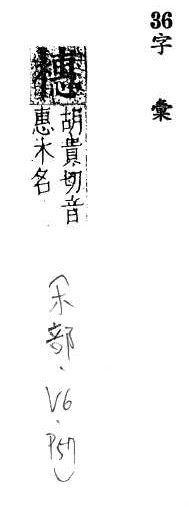 36
字彙
橞
胡貴切音
惠木名
(木部.V6.P57)